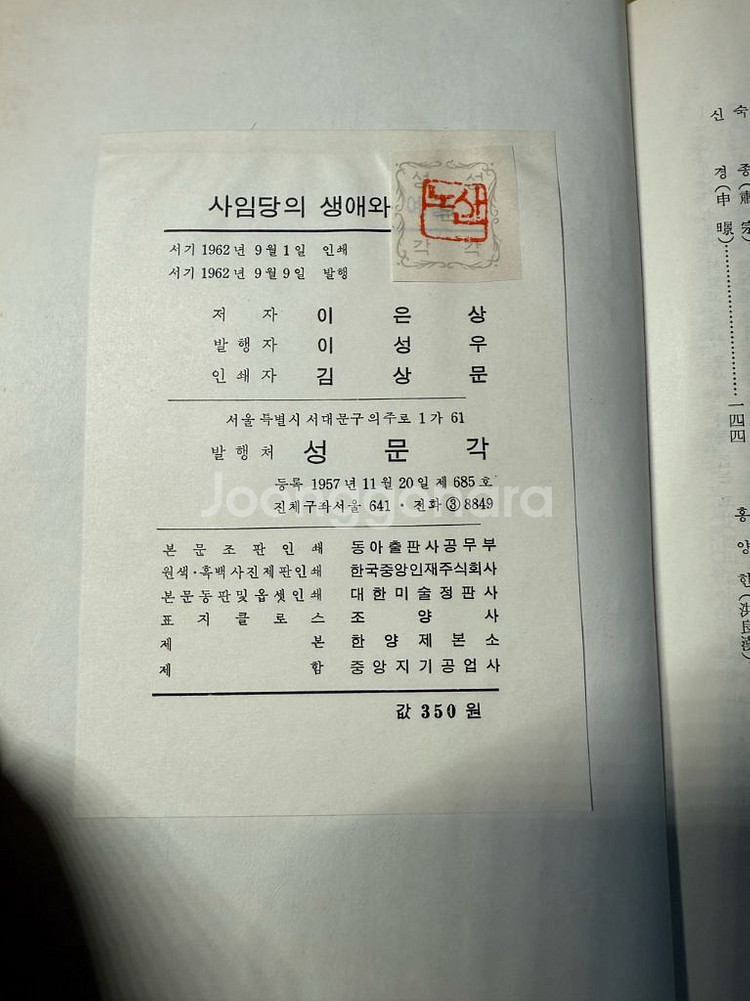 사임당의 생애와
노산
서기 1962년 9월 1일 인쇄
서기 1962년 9월 9일 발행
저자 이은상
발행자 이성우
인쇄자 김상문
서울특별시 서대문구 의주로 1가 61
발행처 성문각
등록 1957년 11월 20일 제 685호
진체구좌서울 641 · 전화 ③ 8849
Joonggonara
본문조판인쇄 동아출판사공무부
원색·흑백사진제판인쇄 한국중앙인재주식회사
본문동판및옵셋인쇄 대한미술정판사
표지클로스 조양사
제본 한양제본소
제함 중앙지기공업사
값 350원
숙종(肅宗)
신경(申暻)……一四四
홍양한(洪良漢)